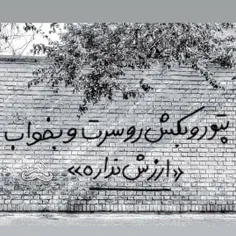 پتورو بکش رو سرت و بخواب
«ارزش نداره»